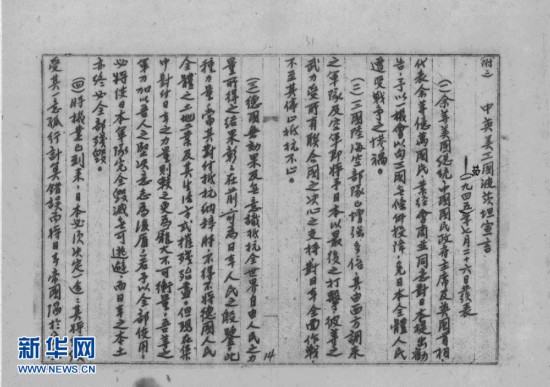 附二　中英美三國波茨坦宣言
一九四五年七月二十六日發表
(一)余等美國總統中國國民政府主席及英國首相
代表余等億萬國民業經會商並同意對日本提出勸
告，予以一機會以向三國無條件投降，免日本全體人民
遭受戰爭之慘禍。
(二)三國陸海空部隊已增強多倍，其由西方調來
之軍隊及空軍即將予日本以最後之打擊，彼等之
武力受所有聯合國之決心之支持對日本全面作戰，
不至其停止抵抗不止。
14
(三)德國無効果及無意識抵抗全世界自由人民之力
量所得之結果彰彰在前，可為日本人民之殷鑒，此
種力量當其對付抵抗納粹時不得不將德國人民
全體之土地工業及其生活方式摧殘殆盡。但現在集
中對付日本之力量則較之更為龐大不可衡量。吾等之
軍力加以吾人之堅決意志為後盾，若予以全部使用，
必將使日本軍隊完全毀滅無可逃避，而日本之本土
亦終必全部殘毀。
(四)時機業已到來，日本必須決定一途，其將
受其一意孤行計其錯誤而將日本帝國陷於
新华网
WWW.NEWS.CN